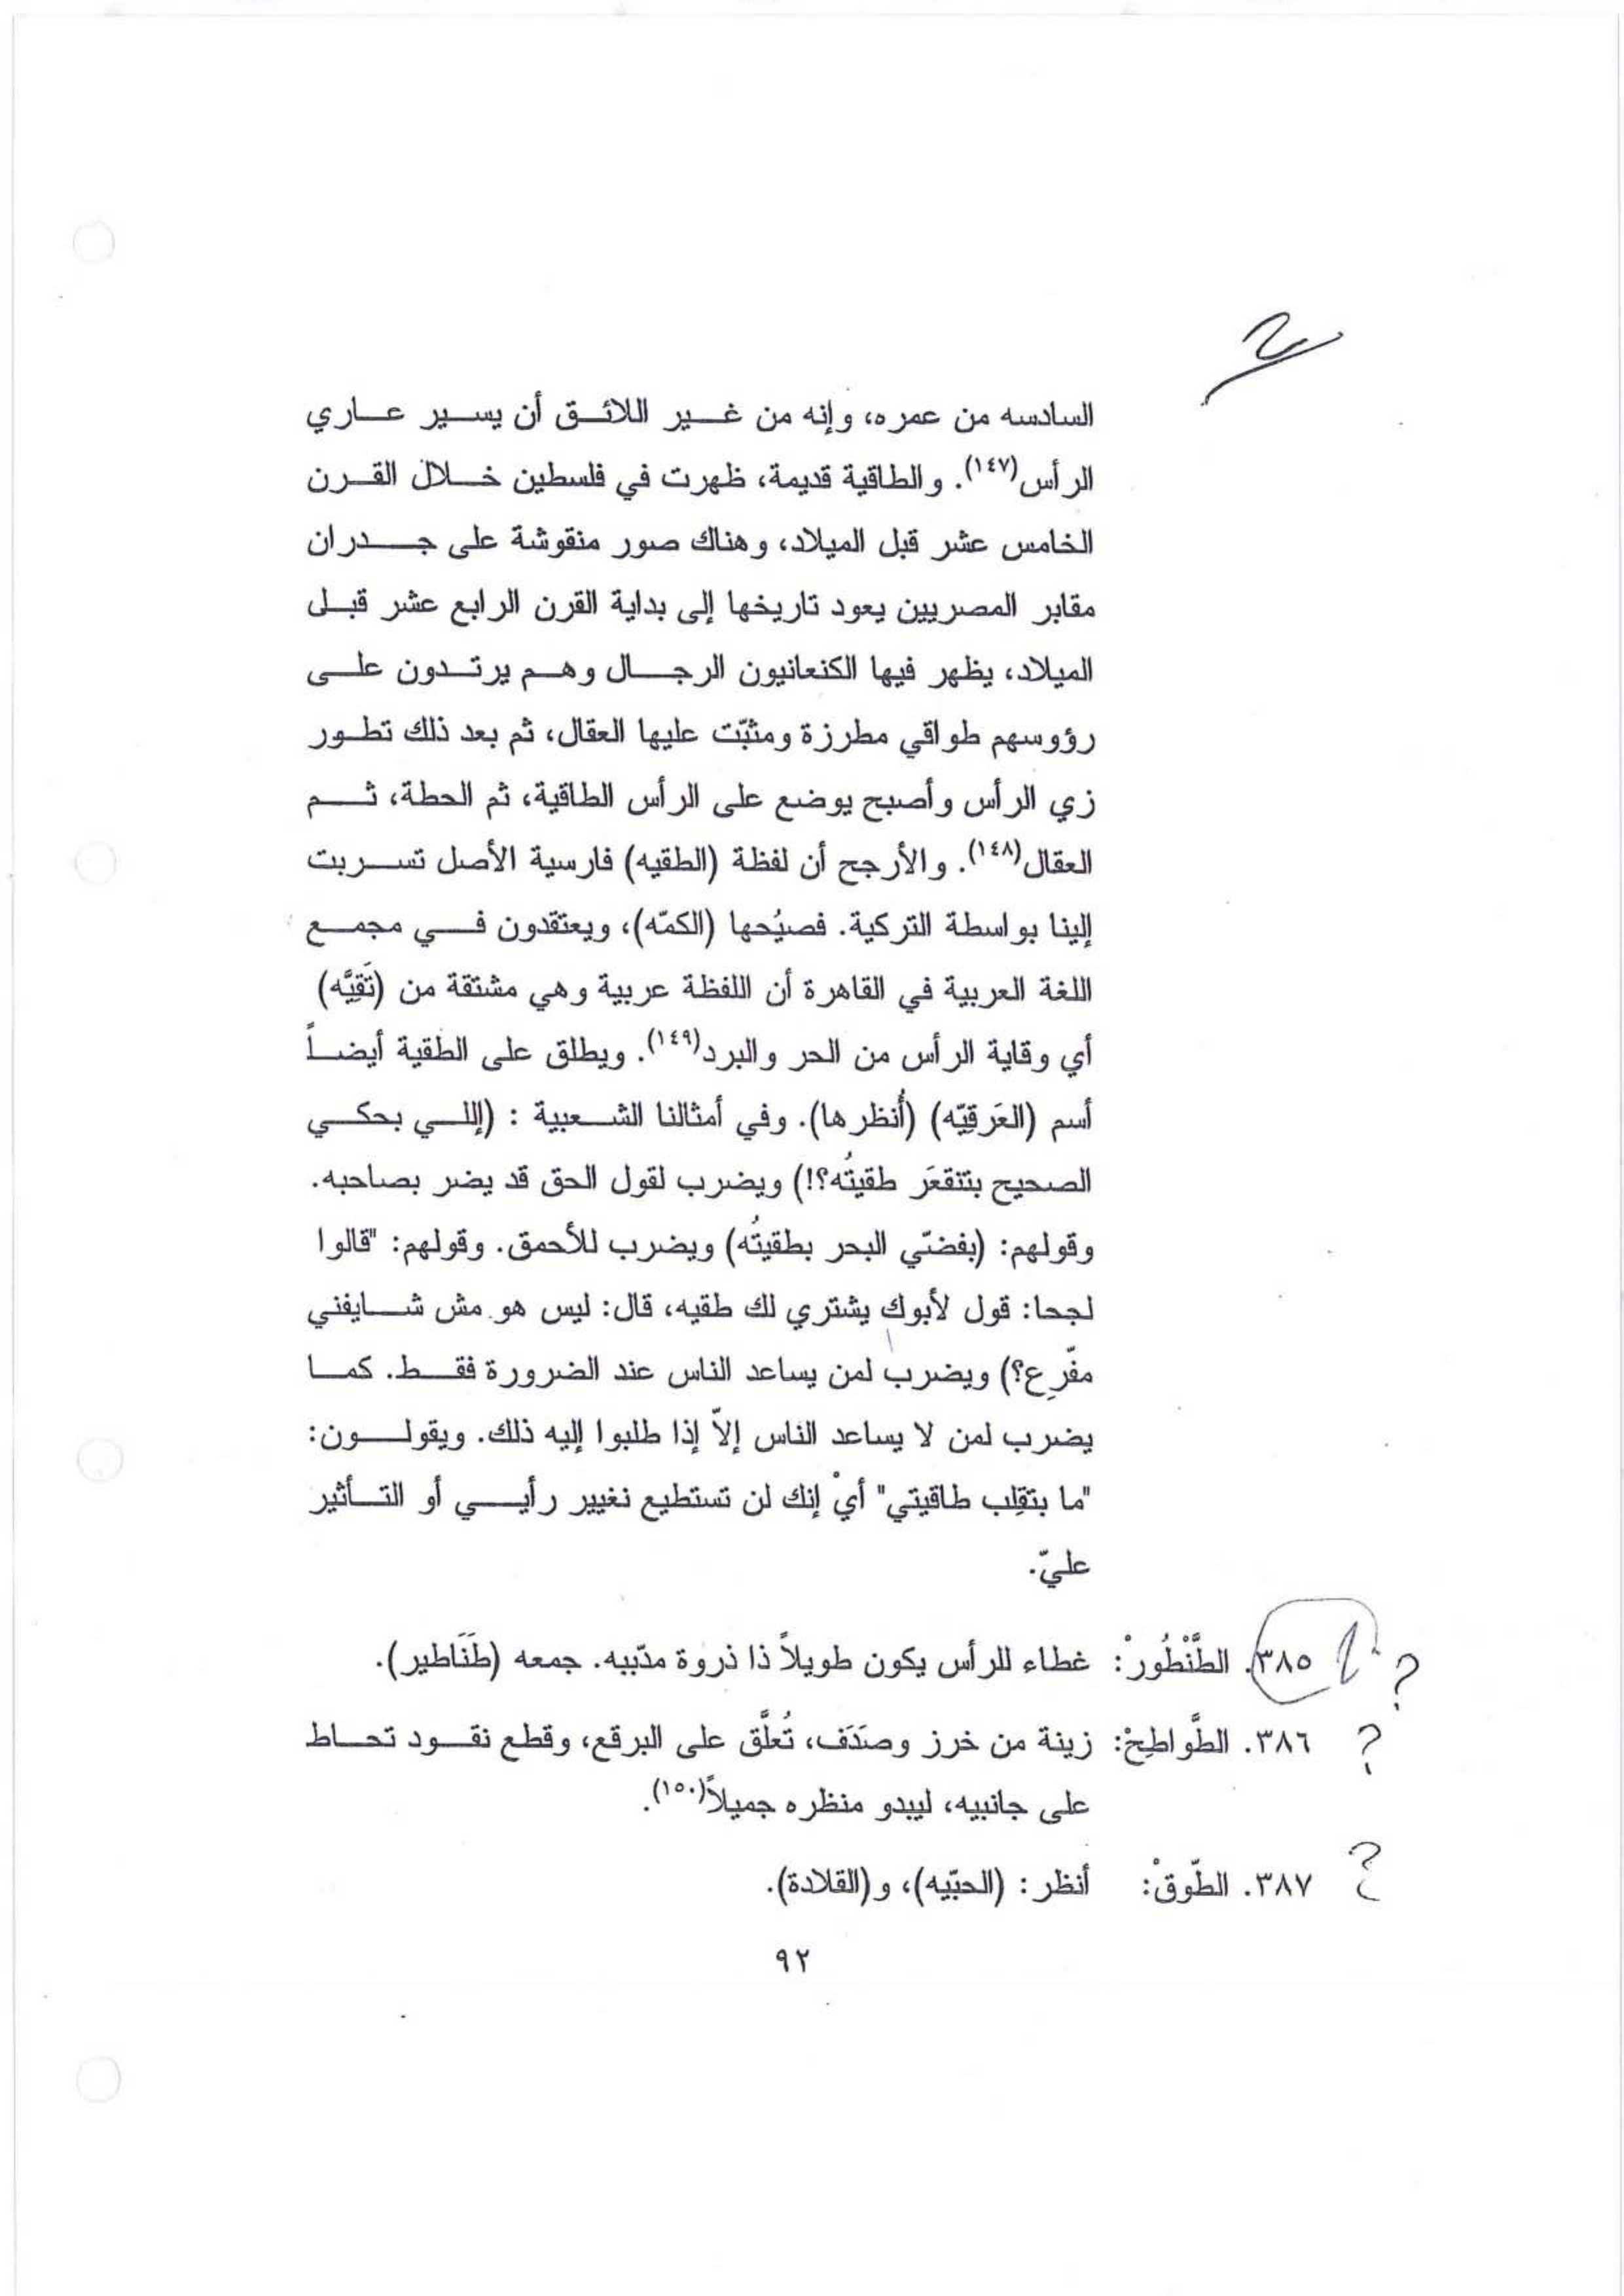 السادسه من عمره، وإنه من غير اللائق أن يسير عاري
الرأس(١٤٧). والطاقية قديمة، ظهرت في فلسطين خلال القرن
الخامس عشر قبل الميلاد، وهناك صور منقوشة على جدران
مقابر المصريين يعود تاريخها إلى بداية القرن الرابع عشر قبل
الميلاد، يظهر فيها الكنعانيون الرجال وهم يرتدون على
رؤوسهم طواقي مطرزة ومثبّت عليها العقال، ثم بعد ذلك تطور
زي الرأس وأصبح يوضع على الرأس الطاقية، ثم الحطة، ثم
العقال(١٤٨). والأرجح أن لفظة (الطقيه) فارسية الأصل تسربت
إلينا بواسطة التركية. فصيُحها (الكمّه)، ويعتقدون في مجمع
اللغة العربية في القاهرة أن اللفظة عربية وهي مشتقة من (تَقِيَّه)
أي وقاية الرأس من الحر والبرد(١٤٩). ويطلق على الطقية أيضاً
أسم (العَرقِيّه) (أُنظرها). وفي أمثالنا الشعبية : (إللي بحكي
الصحيح بتنقعَر طقيتُه؟!) ويضرب لقول الحق قد يضر بصاحبه.
وقولهم: (بفضّي البحر بطقيتُه) ويضرب للأحمق. وقولهم: "قالوا
لجحا: قول لأبوك يشتري لك طقيه، قال: ليس هو مش شايفني
مفّرِع؟) ويضرب لمن يساعد الناس عند الضرورة فقط. كما
يضرب لمن لا يساعد الناس إلاّ إذا طلبوا إليه ذلك. ويقولون:
"ما بتقِلب طاقيتي" أيْ إنك لن تستطيع نغيير رأيي أو التأثير
عليّ.
٣٨٥. الطَّنْطُورْ: غطاء للرأس يكون طويلاً ذا ذروة مدّببه. جمعه (طَنَاطير). ؟
٣٨٦. الطَّواطِحْ: زينة من خرز وصَدَف، تُعلَّق على البرقع، وقطع نقود تحاط ؟
على جانبيه، ليبدو منظره جميلاً(١٥٠).
٣٨٧. الطّوقْ: أنظر : (الحبّيه)، و(القلادة). ؟
٩٢